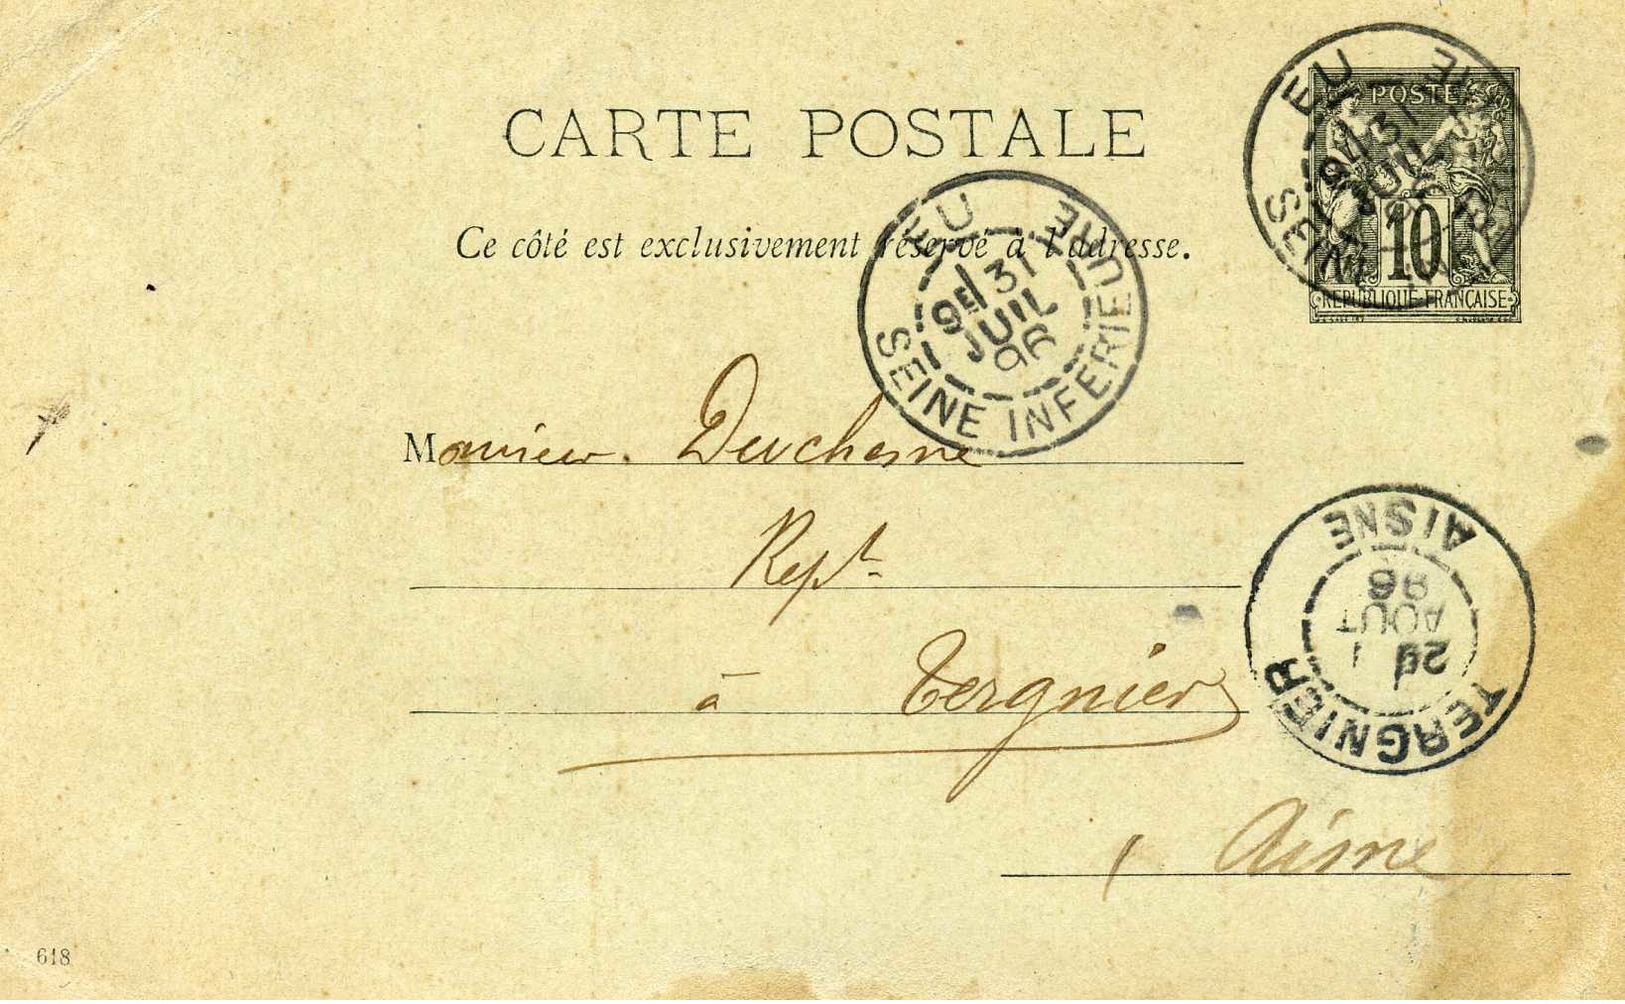 CARTE POSTALE
POSTE
10
REPUBLIQUE FRANÇAISE
Ce côté est exclusivement réservé à l'adresse.
EU
SEINE
31
JUIL
EU
SEINE INFERIEURE
9E 31
JUIL
96
Monsieur. Duchesne
Rept
à Tergnier
Aisne
TERGNIER
AISNE
2E 1
AOUT
96
618